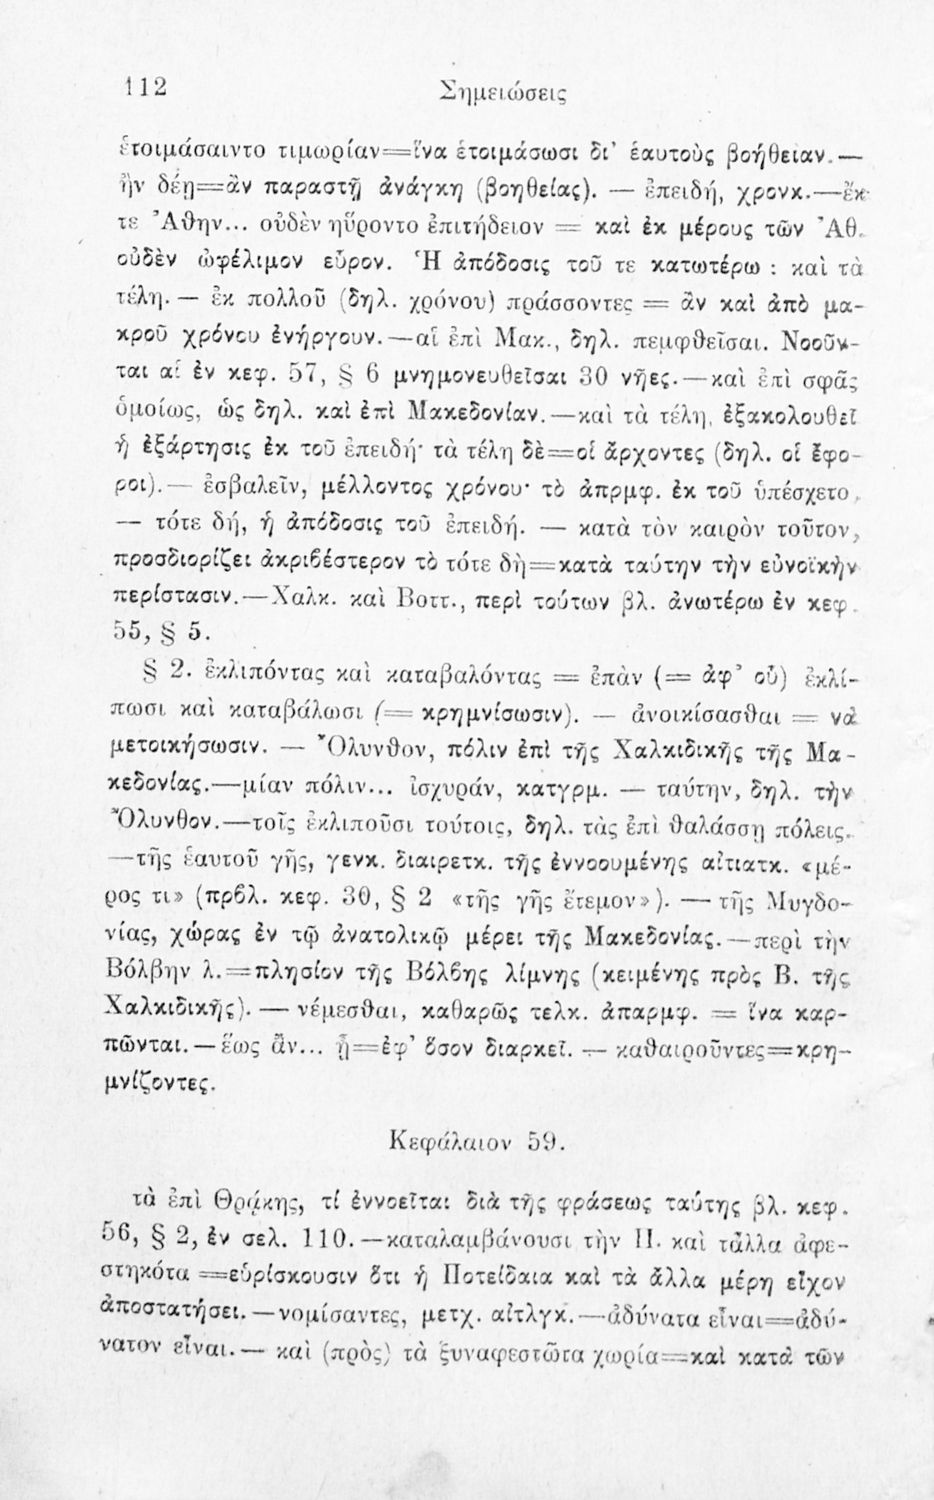 112
Σημειώσεις
ἑτοιμάσαιντο τιμωρίαν=ἵνα ἑτοιμάσωσι δι' ἑαυτοὺς βοήθειαν.—
ἢν δέῃ=ἂν παραστῇ ἀνάγκη (βοηθείας). — ἐπειδή, χρονκ.—ἔκ
τε Ἀθην... οὐδὲν ηὕροντο ἐπιτήδειον = καὶ ἐκ μέρους τῶν Ἀθ.
οὐδὲν ὠφέλιμον εὗρον. Ἡ ἀπόδοσις τοῦ τε κατωτέρω : καὶ τὰ
τέλη. — ἐκ πολλοῦ (δηλ. χρόνου) πράσσοντες = ἂν καὶ ἀπὸ μα-
κροῦ χρόνου ἐνήργουν.—αἱ ἐπὶ Μακ., δηλ. πεμφθεῖσαι. Νοοῦν-
ται αἱ ἐν κεφ. 57, § 6 μνημονευθεῖσαι 30 νῆες.—καὶ ἐπὶ σφᾶς
ὁμοίως, ὡς δηλ. καὶ ἐπὶ Μακεδονίαν.—καὶ τὰ τέλη, ἐξακολουθεῖ
ἡ ἐξάρτησις ἐκ τοῦ ἐπειδή· τὰ τέλη δὲ=οἱ ἄρχοντες (δηλ. οἱ ἔφο-
ροι).— ἐσβαλεῖν, μέλλοντος χρόνου· τὸ ἀπρμφ. ἐκ τοῦ ὑπέσχετο.
— τότε δή, ἡ ἀπόδοσις τοῦ ἐπειδή. — κατὰ τὸν καιρὸν τοῦτον,
προσδιορίζει ἀκριβέστερον τὸ τότε δὴ=κατὰ ταύτην τὴν εὐνοϊκὴν
περίστασιν.—Χαλκ. καὶ Βοττ., περὶ τούτων βλ. ἀνωτέρω ἐν κεφ.
55, § 5.
§ 2. ἐκλιπόντας καὶ καταβαλόντας = ἐπὰν (= ἀφ' οὗ) ἐκλί-
πωσι καὶ καταβάλωσι (= κρημνίσωσιν). — ἀνοικίσασθαι = νὰ
μετοικήσωσιν. — Ὄλυνθον, πόλιν ἐπὶ τῆς Χαλκιδικῆς τῆς Μα-
κεδονίας.—μίαν πόλιν... ἰσχυράν, κατγρμ. — ταύτην, δηλ. τὴν
Ὄλυνθον.—τοῖς ἐκλιποῦσι τούτοις, δηλ. τὰς ἐπὶ θαλάσσῃ πόλεις.
—τῆς ἑαυτοῦ γῆς, γενκ. διαιρετκ. τῆς ἐννοουμένης αἰτιατκ. «μέ-
ρος τι» (πρβλ. κεφ. 30, § 2 «τῆς γῆς ἔτεμον»). — τῆς Μυγδο-
νίας, χώρας ἐν τῷ ἀνατολικῷ μέρει τῆς Μακεδονίας.—περὶ τὴν
Βόλβην λ.=πλησίον τῆς Βόλβης λίμνης (κειμένης πρὸς Β. τῆς
Χαλκιδικῆς). — νέμεσθαι, καθαρῶς τελκ. ἀπαρμφ. = ἵνα καρ-
πῶνται.—ἕως ἂν... ᾖ=ἐφ' ὅσον διαρκεῖ. — καθαιροῦντες=κρη-
μνίζοντες.
Κεφάλαιον 59.
τὰ ἐπὶ Θρᾴκης, τί ἐννοεῖται διὰ τῆς φράσεως ταύτης βλ. κεφ.
56, § 2, ἐν σελ. 110.—καταλαμβάνουσι τὴν Π. καὶ τἆλλα ἀφε-
στηκότα =εὑρίσκουσιν ὅτι ἡ Ποτείδαια καὶ τὰ ἄλλα μέρη εἶχον
ἀποστατήσει.—νομίσαντες, μετχ. αἰτλγκ.—ἀδύνατα εἶναι=ἀδύ-
νατον εἶναι.— καὶ (πρὸς) τὰ ξυναφεστῶτα χωρία=καὶ κατὰ τῶν